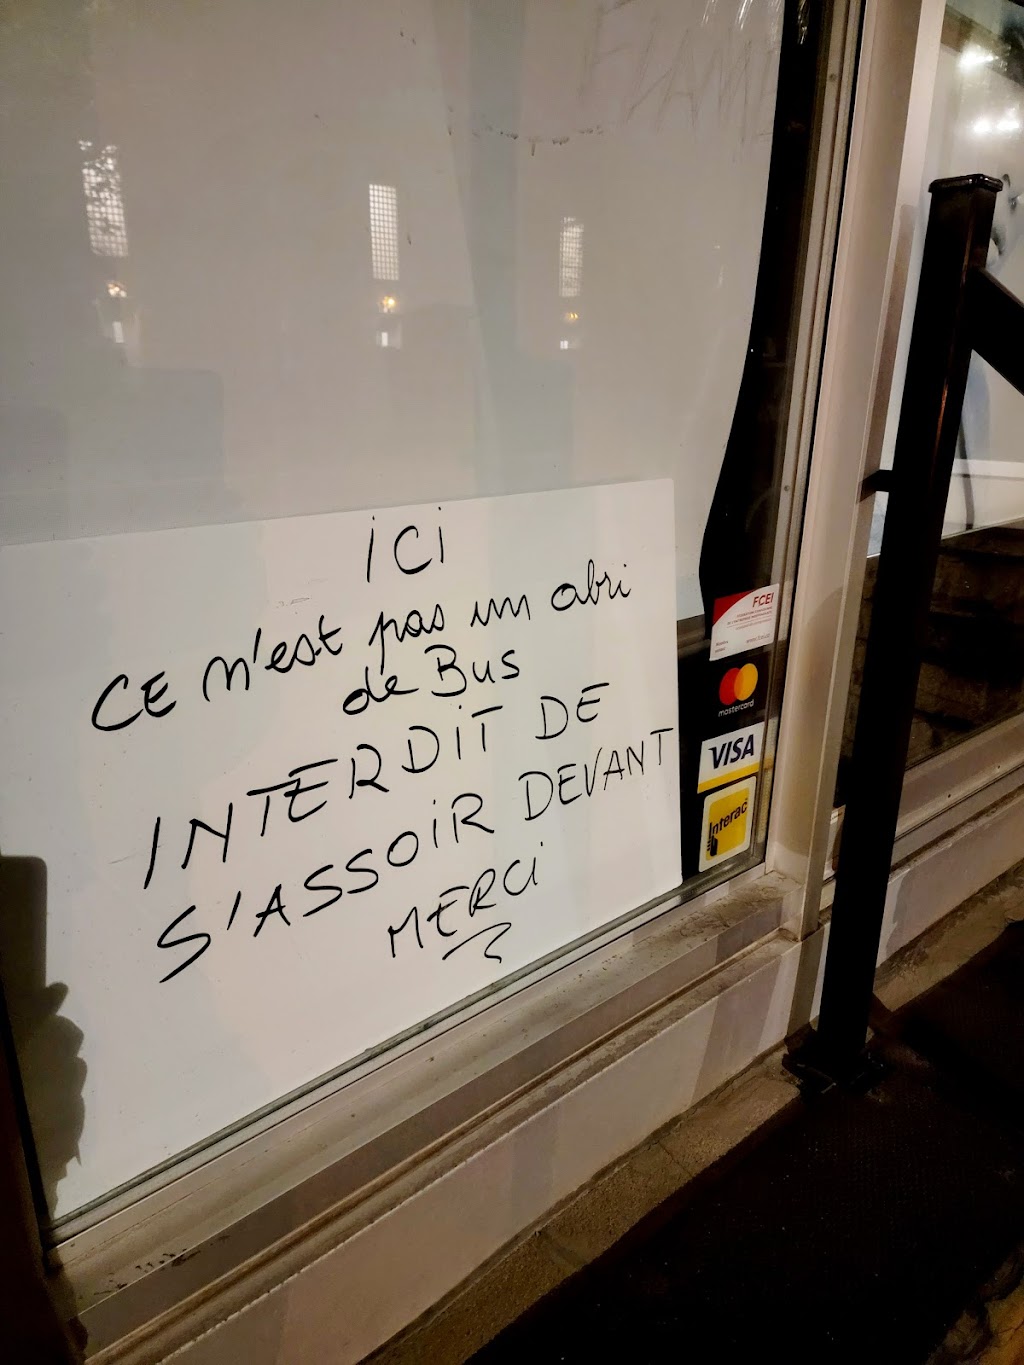 iCi
CE n'est pas un abri
de Bus
INTERDiT DE
S'ASSOiR DEVANT
MERCi
FCEI
mastercard
VISA
Interac